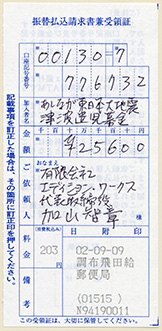 振替払込請求書兼受領証
口座記号番号
00130=7
776732
加入者名
あしなが東日本大地震
津波遺児募金
金額
千百十万千百十円
¥25600
ご依頼人
おなまえ
有限会社
エディション・ワークス
代表取締役
加山智章
様
料金
203
円
日附印
備考
02-09-09
調布飛田給
郵便局
(01515)
N94190011
この受領証は、大切に保管してください。
記載事項を訂正した場合は、その箇所に訂正印を押してください。